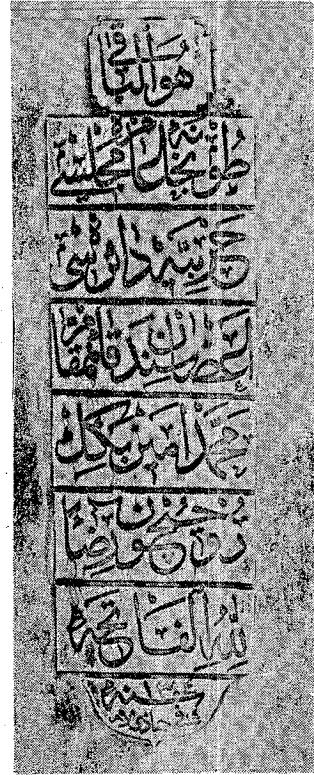 هو الباقى
طوپخانه عامره مجلسى
حربيه دائره سى
اعضاسندن قائممقام
محمد امين بكك
روحيچون رضاء
لله الفاتحه
سنه